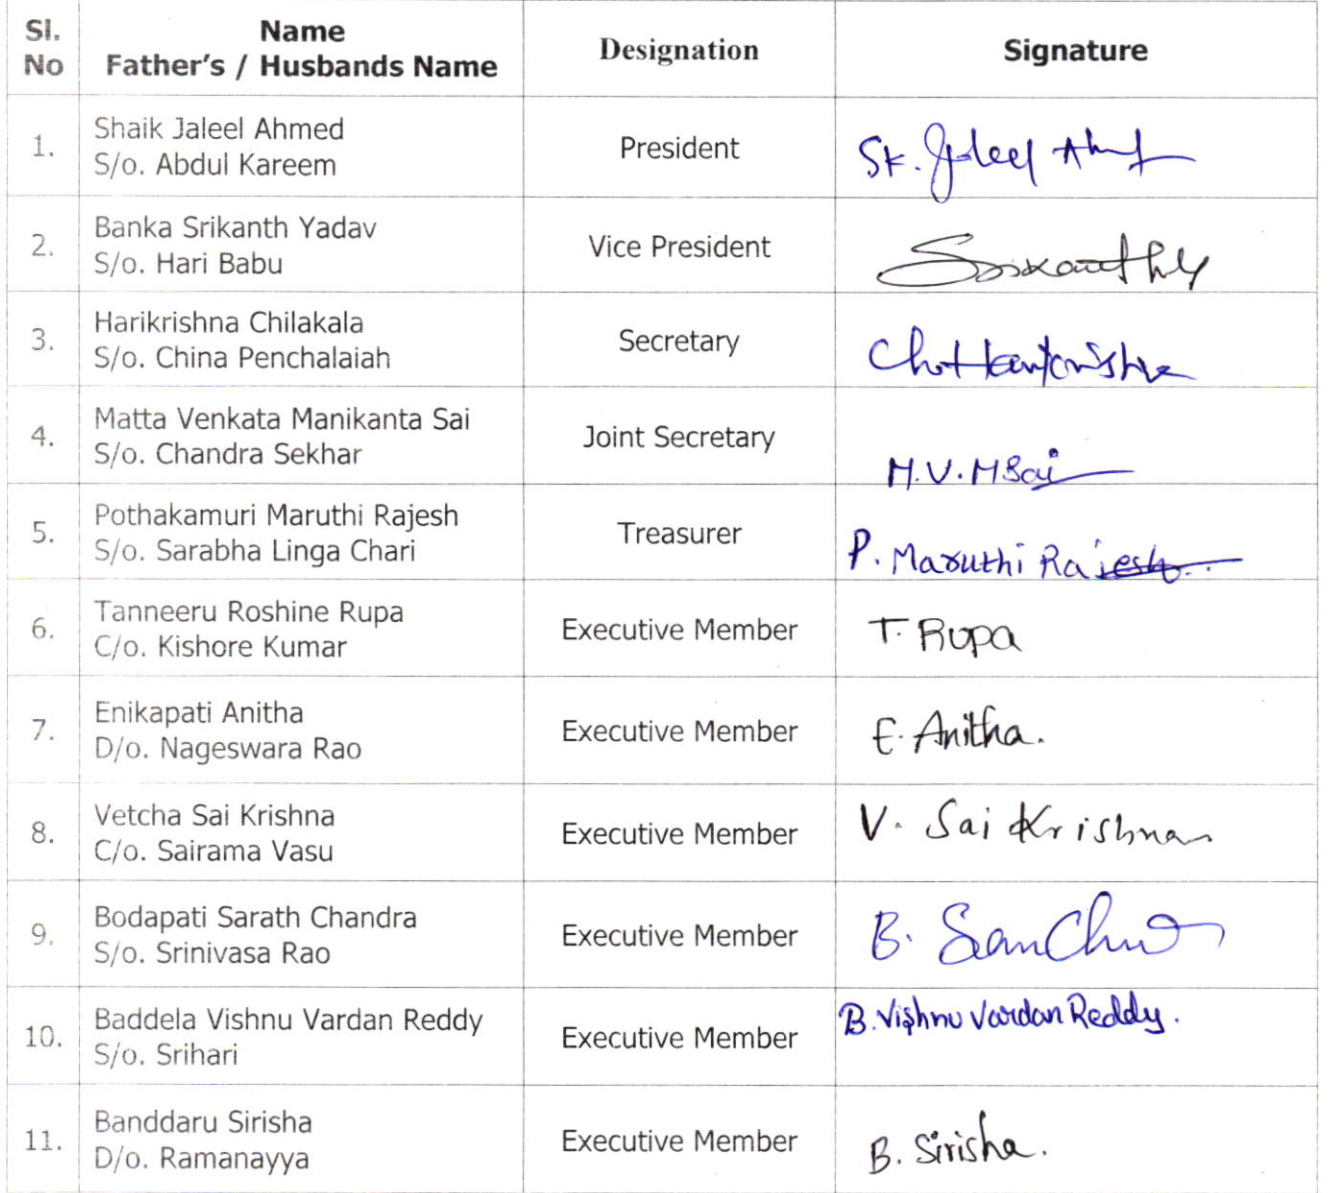 Sl. No
Name
Father's / Husbands Name
Designation
Signature
1.
Shaik Jaleel Ahmed
S/o. Abdul Kareem
President
Sk. Jaleel
2.
Banka Srikanth Yadav
S/o. Hari Babu
Vice President
3.
Harikrishna Chilakala
S/o. China Penchalaiah
Secretary
4.
Matta Venkata Manikanta Sai
S/o. Chandra Sekhar
Joint Secretary
M.V.M Sai
5.
Pothakamuri Maruthi Rajesh
S/o. Sarabha Linga Chari
Treasurer
P. Maruthi Rajesh
6.
Tanneeru Roshine Rupa
C/o. Kishore Kumar
Executive Member
T. Rupa
7.
Enikapati Anitha
D/o. Nageswara Rao
Executive Member
E. Anitha.
8.
Vetcha Sai Krishna
C/o. Sairama Vasu
Executive Member
V. Sai Krishna
9.
Bodapati Sarath Chandra
S/o. Srinivasa Rao
Executive Member
B.
10.
Baddela Vishnu Vardan Reddy
S/o. Srihari
Executive Member
B. Vishnu Vardan Reddy.
11.
Banddaru Sirisha
D/o. Ramanayya
Executive Member
B. Sirisha.